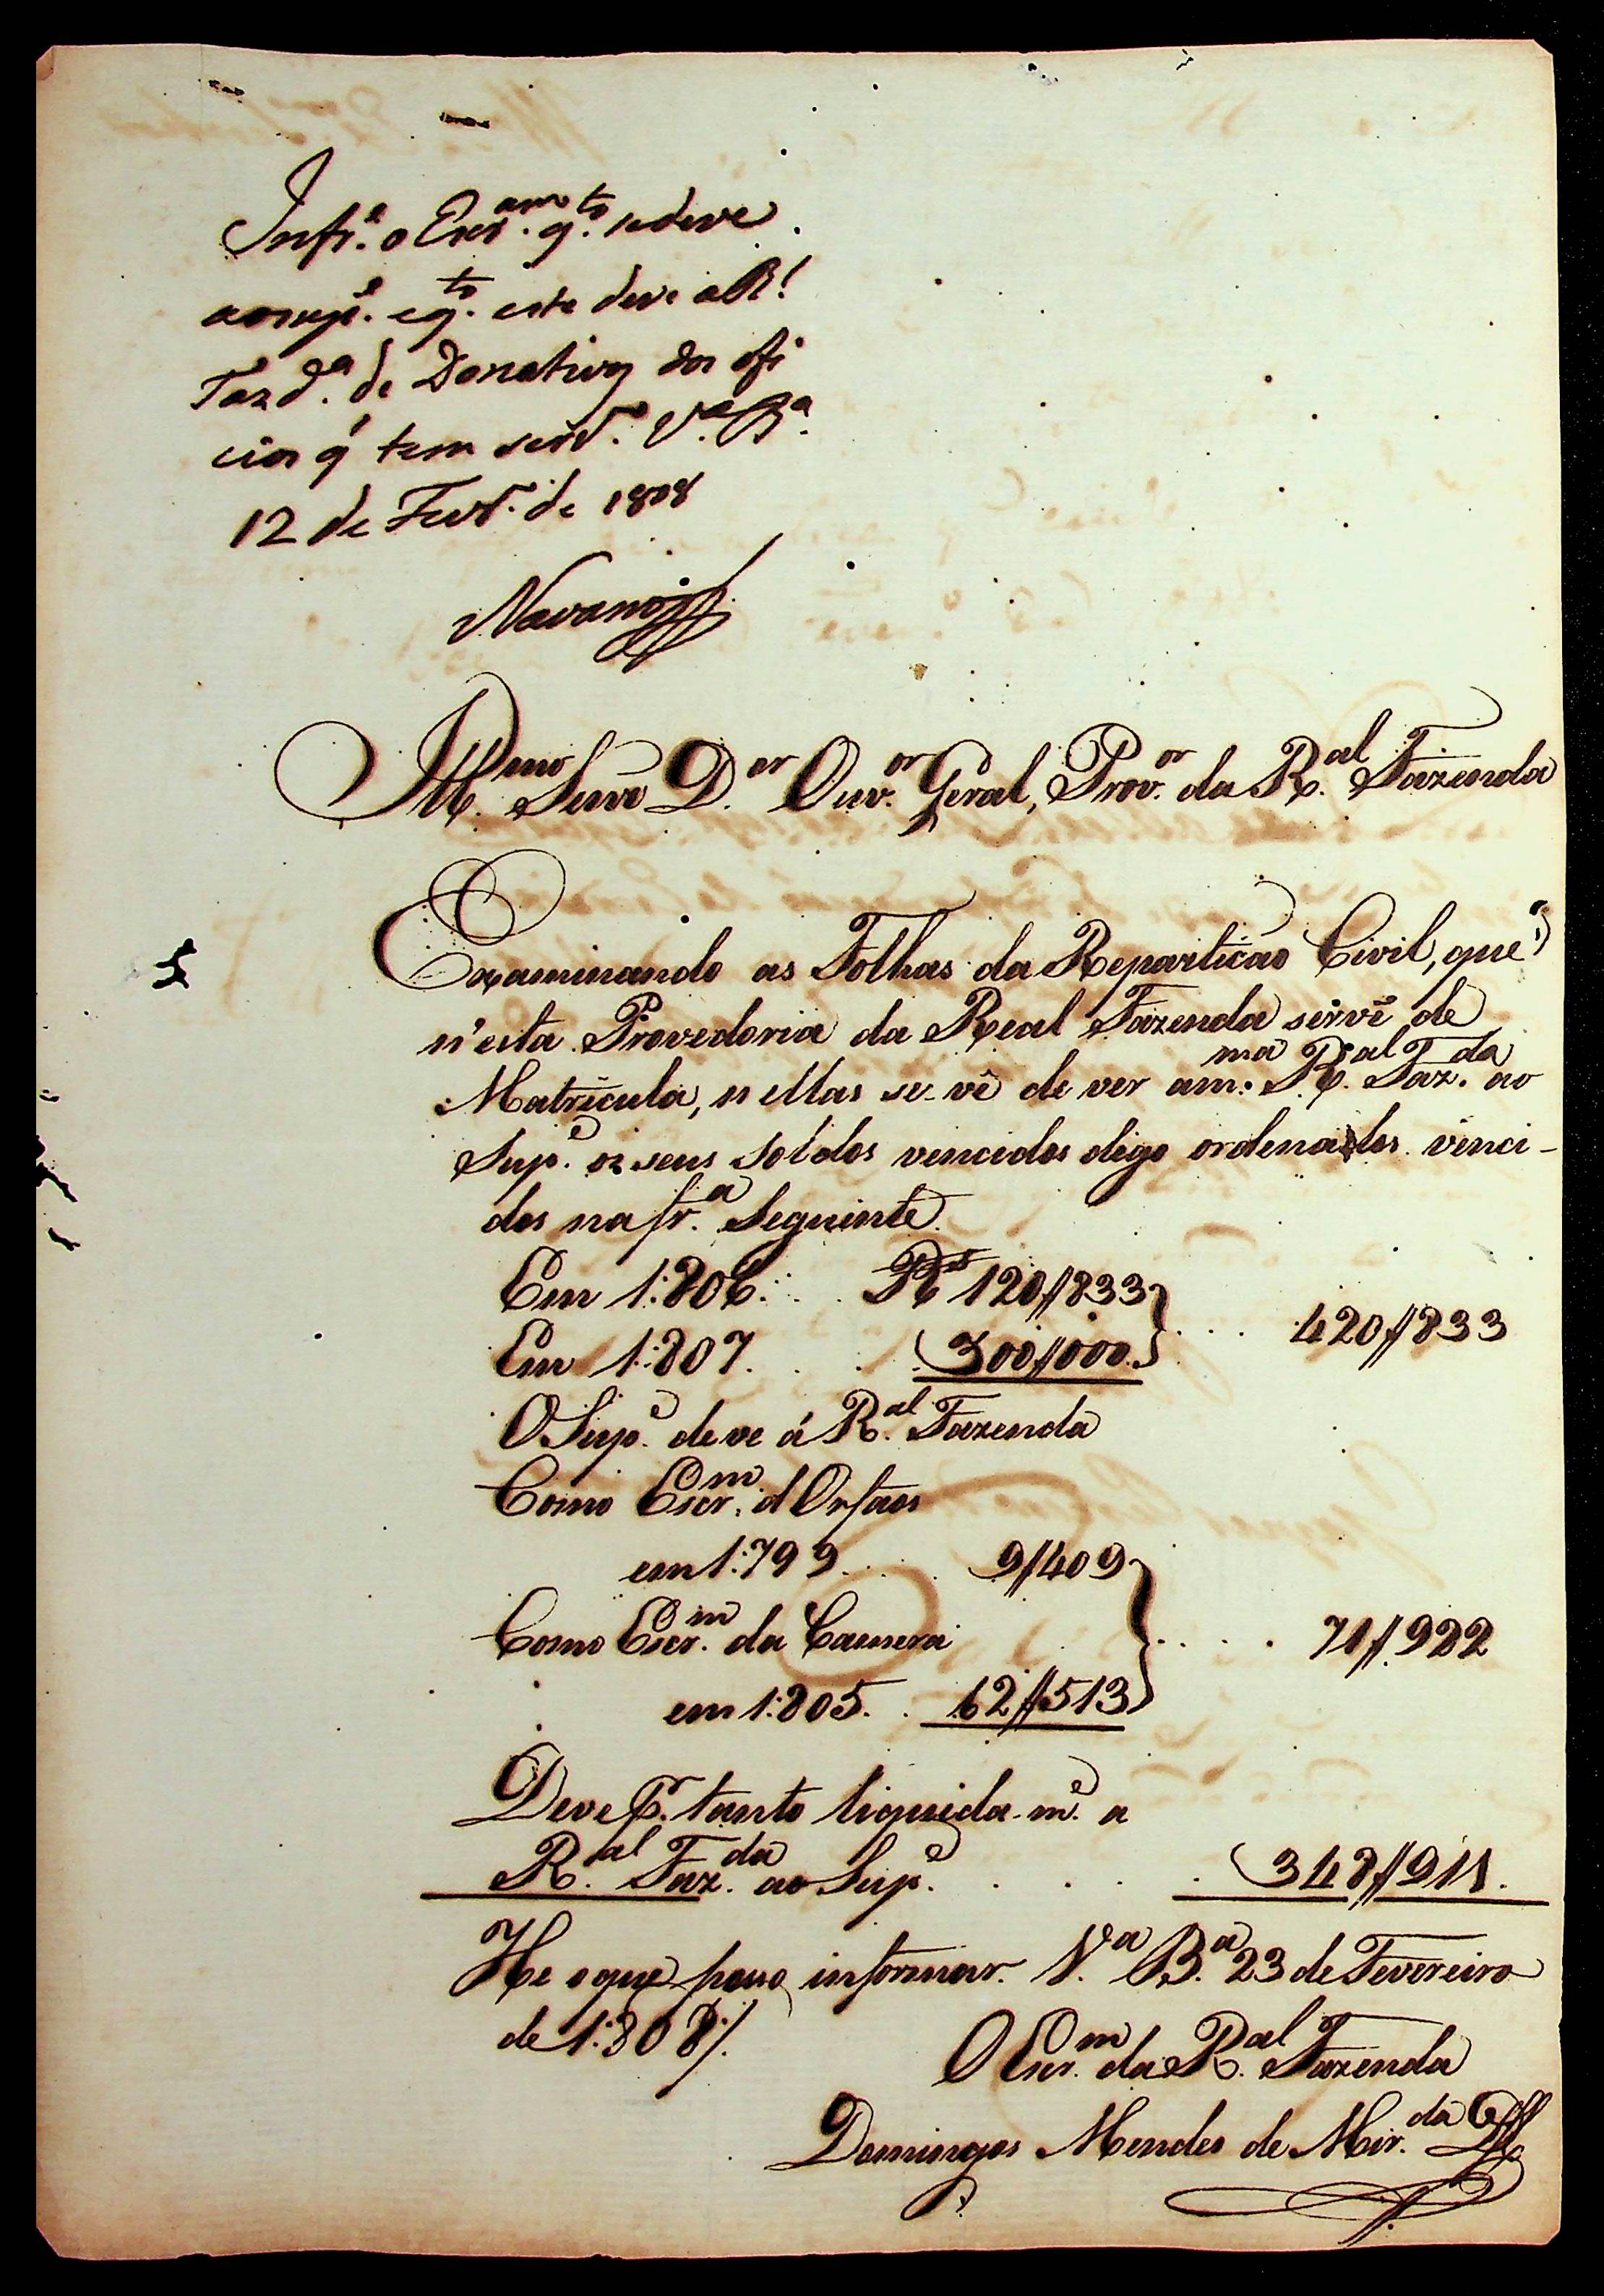 Infr.e o Escr.am q.to se deve
ao sup.e e q.to este deve a R.l
Fazd.a de Donativos dos ofi
cios q' tem serv.o V.a B.a
12 de Fevr.o de 1808
Navarro
Ill.mo Senr. D.or Ouv.or Geral, Prov.or da R.al Fazenda
Examinando as Folhas da Repartiçaõ Civil, que
n'esta Provedoria da Real Fazenda servẽ de
Matricula, n'ellas se vê dever a m.ma R.al Faz.da ao
Sup.e os seus soldos vencidos digo ordenados venci-
dos na fr.a seguinte
Em 1:806. . . R.s 120//833
Em 1:807. . . 300//000 . . . 420//833
O Sup.e deve á R.al Fazenda
Como Escr.m d'Orfaos
em 1:799. . . 9//409
Como Escr.m da Camera . . . . 71//922
em 1:805. . 62//513
Deve p.r tanto liquida-m.e a
R.al Faz.da ao Sup.e . . . . . 348//911.
He o que posso informar. V.a B.a 23 de Fevereiro
de 1:808/.
O Escr.m da R.al Fazenda
Domingos Mendes de Mir.da